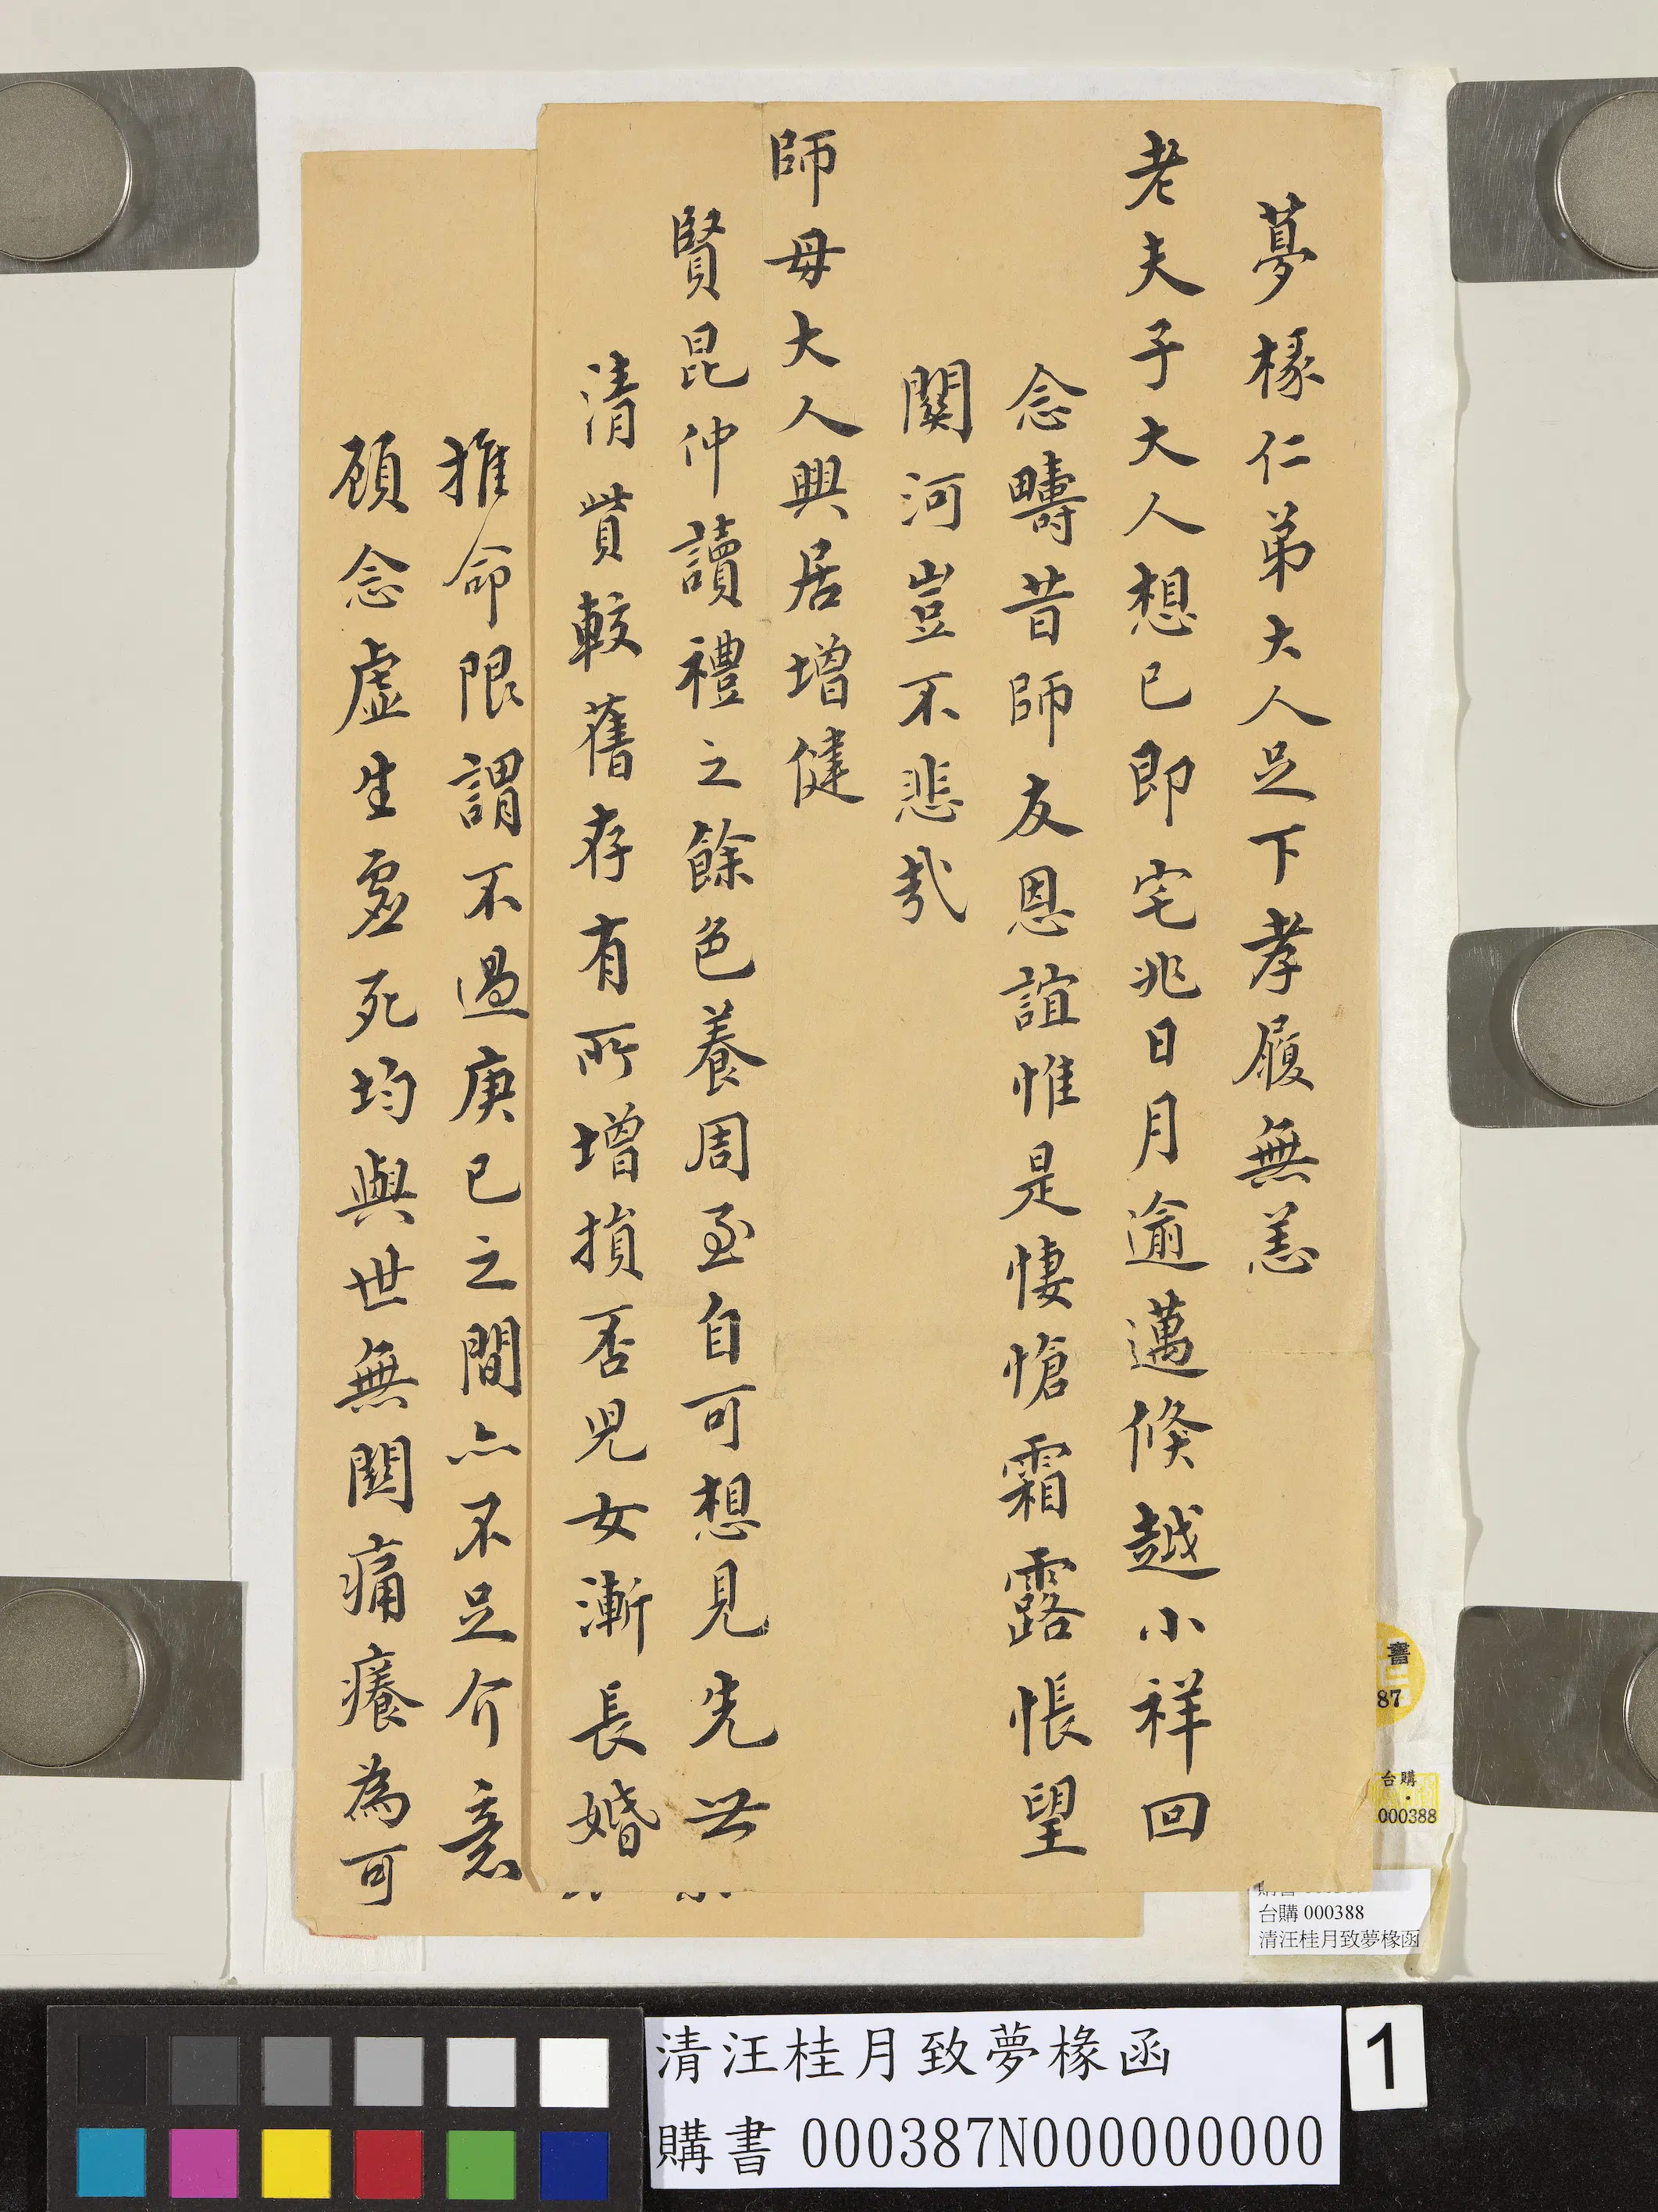 夢椽仁弟大人足下孝履無恙
老夫子大人想已即宅兆日月逾邁倏越小祥回
念疇昔師友恩誼惟是悽愴霜露悵望
關河豈不悲哉
師母大人興居增健
賢昆仲讀禮之餘色養周至自可想見先世
清貲較舊存有所增損否兒女漸長婚
推命限謂不過庚已之間亦不足介意
顧念虛生虛死均與世無關痛癢為可
書
87
台購
000388
台購 000388
清汪桂月致夢椽函
清汪桂月致夢椽函
購書 000387N000000000
1